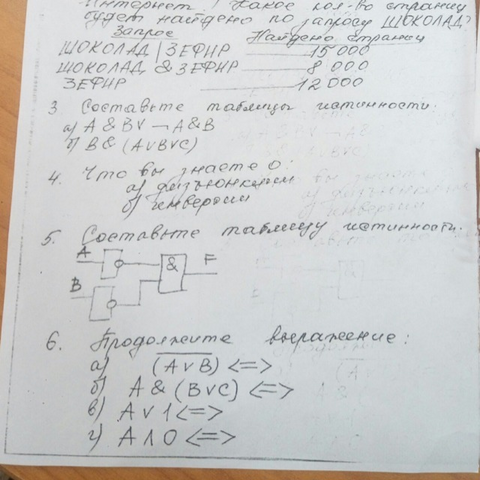 Интернет? Какое кол-во страниц
будет найдено по запросу ШОКОЛАД?
Запрос Найдено страниц
ШОКОЛАД | ЗЕФИР 15 000
ШОКОЛАД & ЗЕФИР 8 000
ЗЕФИР 12 000
3 Составьте таблицы истинности:
а) A & B V ¬ A & B
б) B & (A V B V C)
4. Что вы знаете о:
а) дизъюнкции
б) инверсии
5. Составьте таблицу истинности.
A & F
B
6. Продолжите выражение:
а) (A̅ ̅V̅ ̅B̅) <=>
б) A & (B V C) <=>
в) A V 1 <=>
г) A Λ 0 <=>